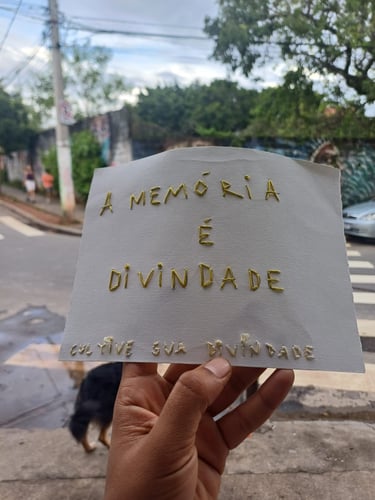 A MEMÓRIA
É
DIVINDADE
CULTIVE SUA DIVINDADE